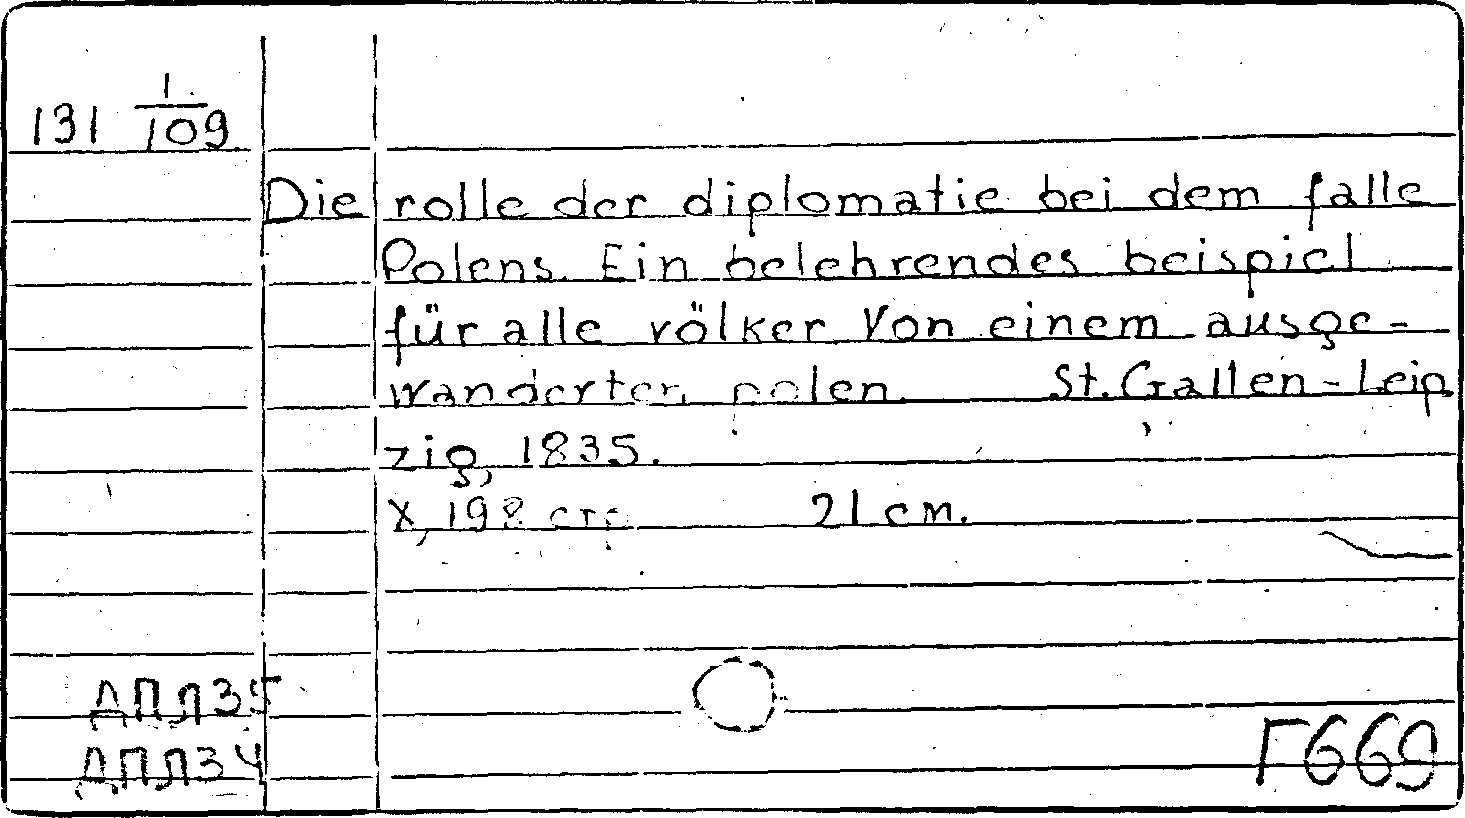 131 1/109
Die rolle der diplomatie bei dem falle
Polens. Ein belehrendes beispiel
für alle völker von einem ausge-
wanderten polen. St. Gallen-Leip
zig, 1835.
X, 198 стр. 21 cm.
ДПЛ35
ДПЛ34
Г669